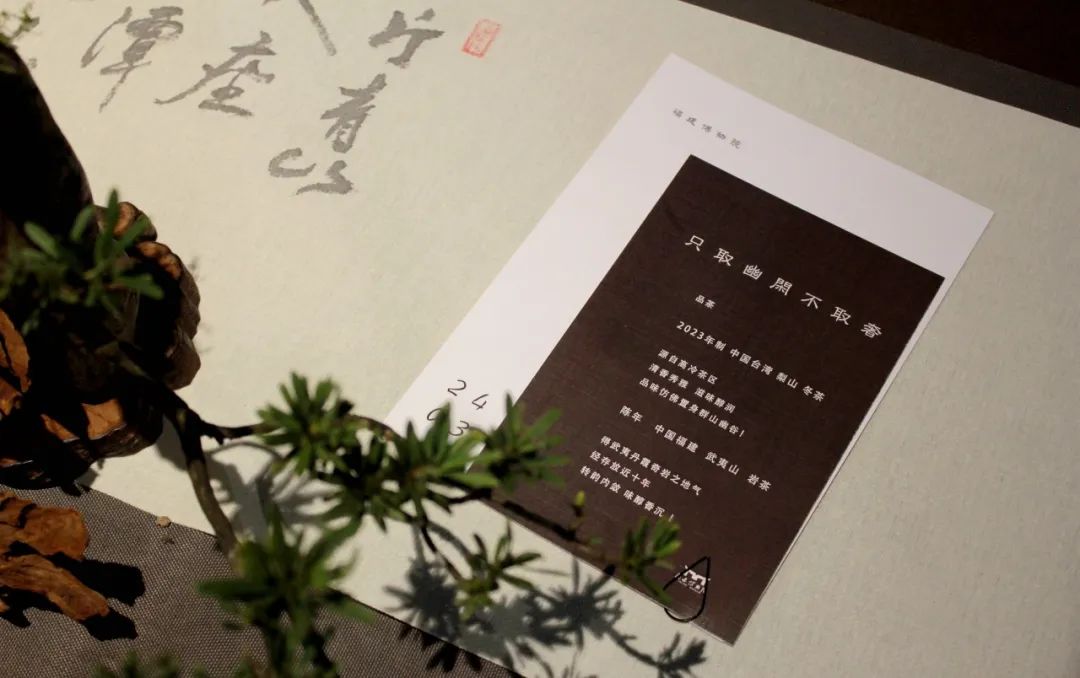 潭
座
片
青山
福建博物院
只取幽閑不取奢
品茶
2023年制 中国台湾 梨山 冬茶
源自高冷茶区
清香秀雅 滋味醇润
品味仿佛置身群山幽谷！
陈年 中国福建 武夷山 岩茶
得武夷丹霞奇岩之地气
经存放近十年
转韵内敛 味醇香沉！
24
03